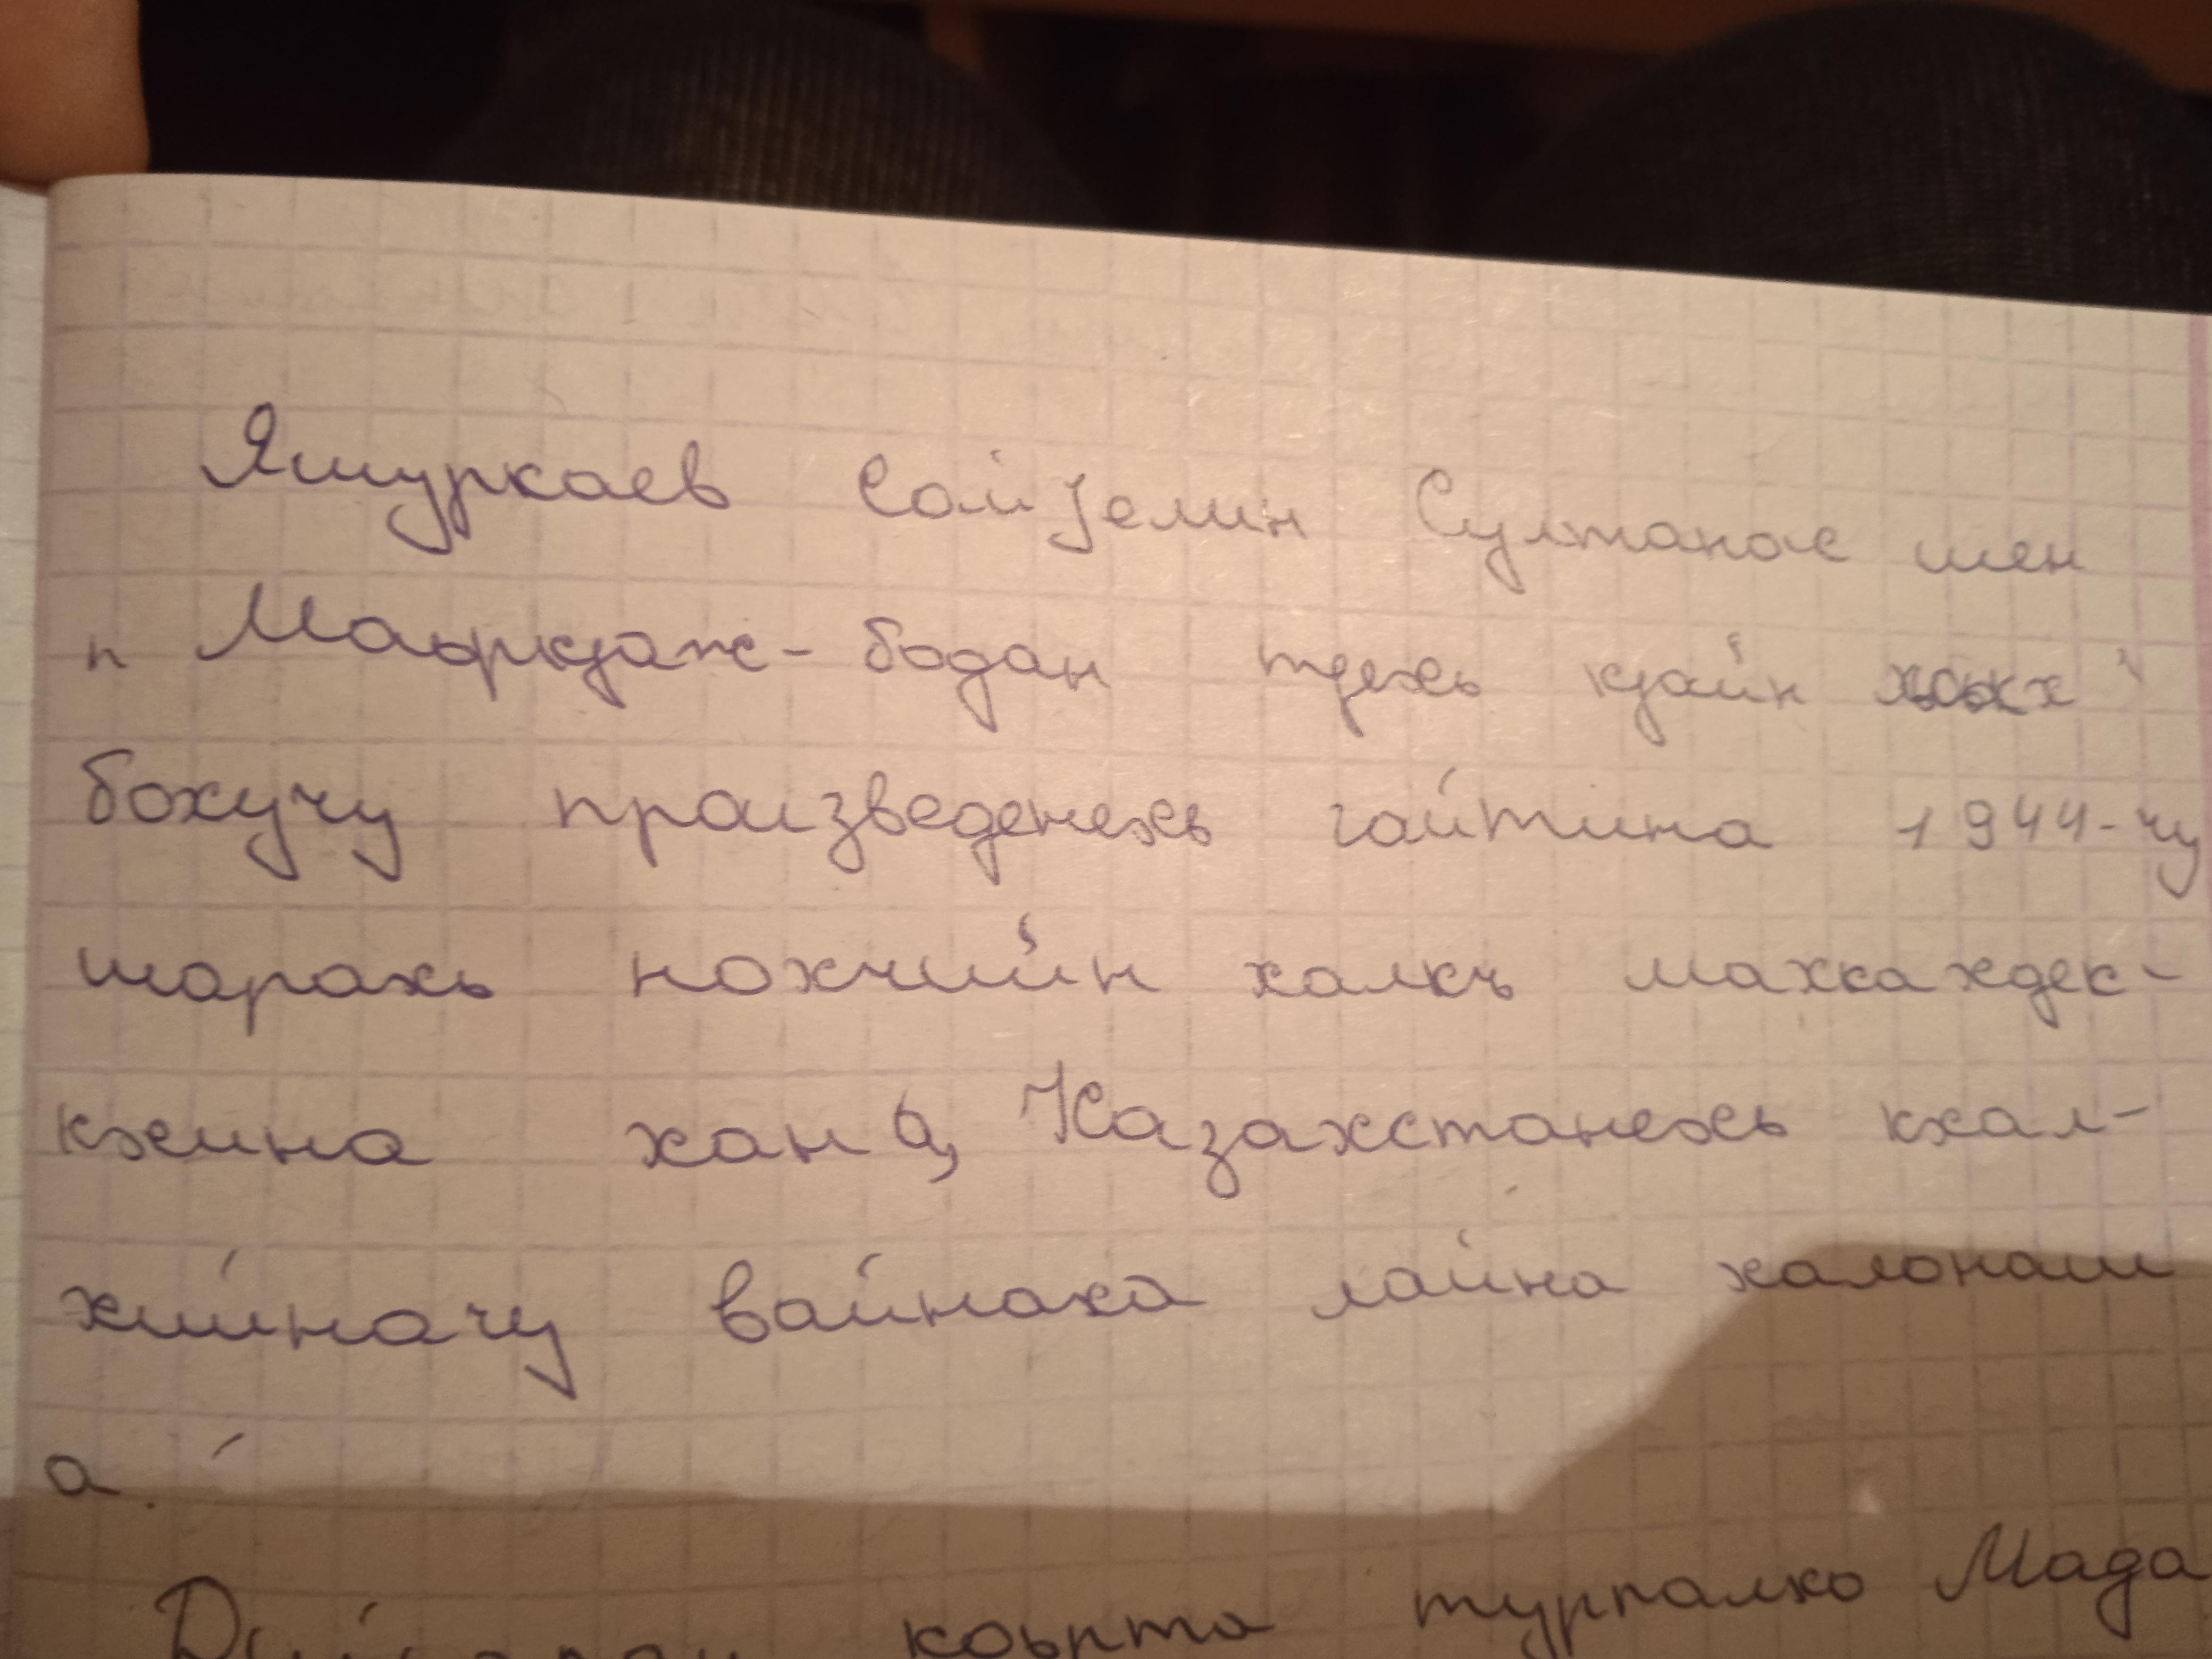 Яшуркаев СайӀелин Султанас шен
" МаьркӀаж-бодан тӀехь кӀайн хьоькх "
бохучу произведенехь гойтина 1944-чу
шарахь нохчийн халкъ махкахдек-
кхина хан а, Казахстанехь кхал-
хийначу вайнаха лайна халонаш
а.
коьрта турпалхо Мада